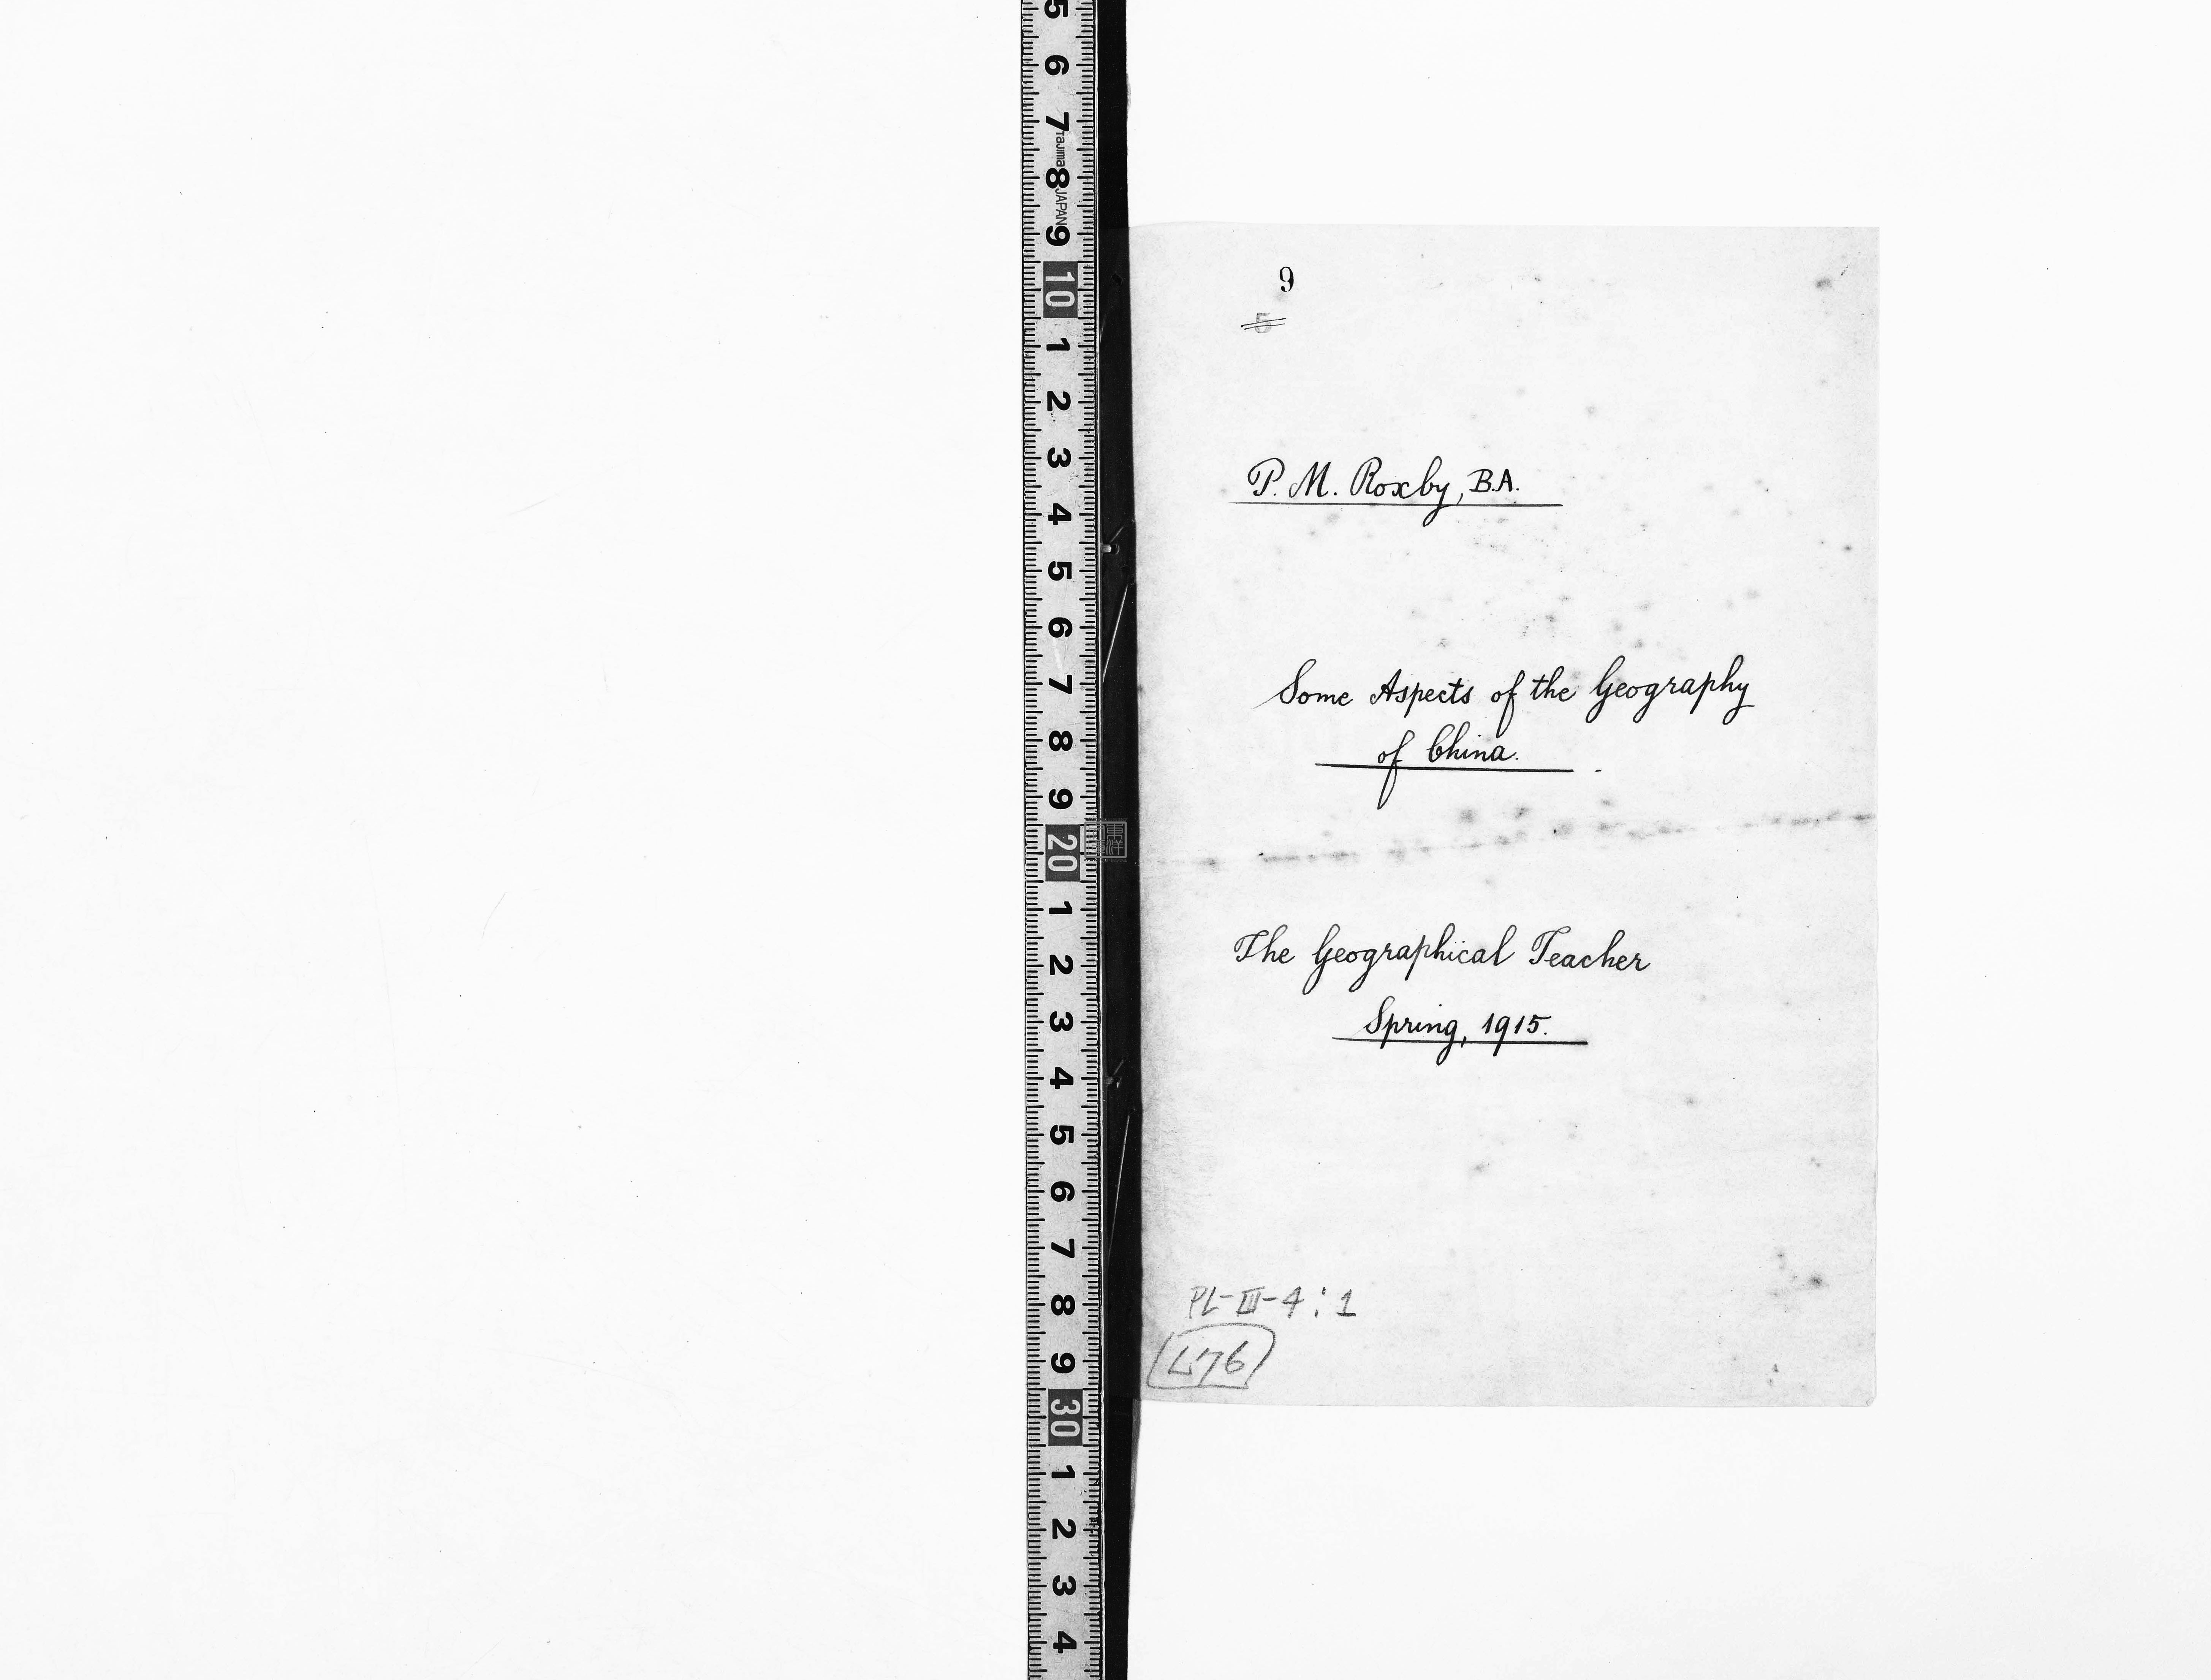 5
6
7
Tajima
8
JAPAN
9
10
1
2
3
4
5
6
7
8
9
20
1
2
3
4
5
6
7
8
9
30
1
2
3
4
9
5
P. M. Roxby, B.A.
Some Aspects of the Geography
of China.
The Geographical Teacher
Spring, 1915.
PL-III-4:1
L76